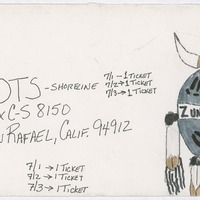 OTS - SHORELINE
7/1 - 1 TICKET
7/2 → 1 TICKET
7/3 → 1 TICKET
X C-S 8150
RAFAEL, CALIF. 94912
ZUN
7/1 → 1 TICKET
7/2 → 1 TICKET
7/3 → 1 TICKET